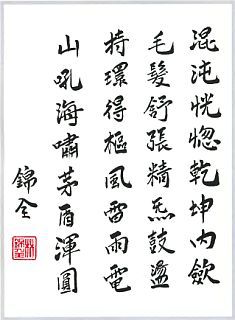 混沌恍惚乾坤内歛
毛髮舒張精炁鼓盪
持環得樞風雷雨電
山吼海嘯茅盾渾圓
錦全